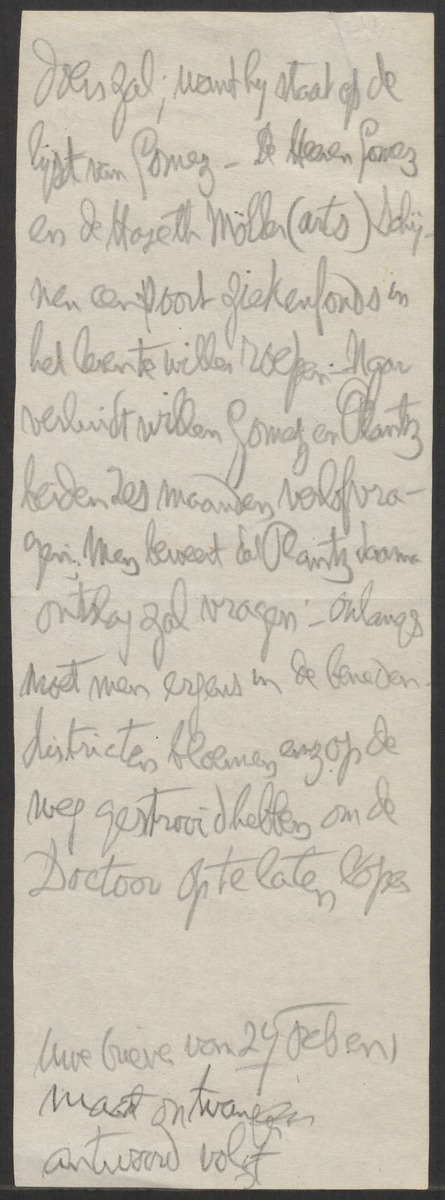 doen zal; want hij staat op de
lijst van Gomez – De Heeren Gomez
en de Haseth Möller (arts) schij-
nen een soort ziekenfonds in
het leven te willen roepen. Naar
verluidt willen Gomez en Plantz
beiden zes maanden verlof vra-
gen. Men beweert dat Plantz daarna
ontslag zal vragen – Onlangs
moet men ergens in de beneden-
districten bloemen enz op de
weg gestrooid hebben om de
Doctoor op te laten lopen
Uwe brieven van 24 Feb en 1
maart ontvangen
antwoord volgt